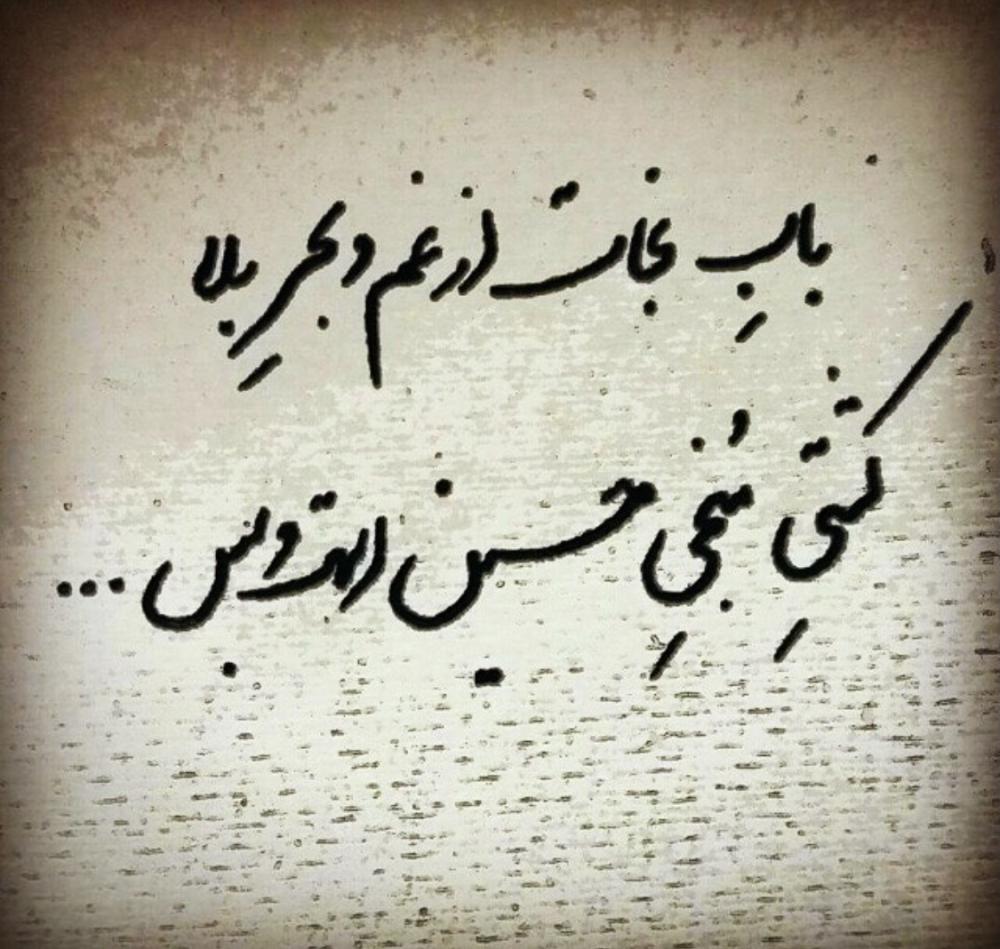 بابِ نجات از غم و بحرِ بلا
کشتیِ مُنجیِ حسین است و بس ...